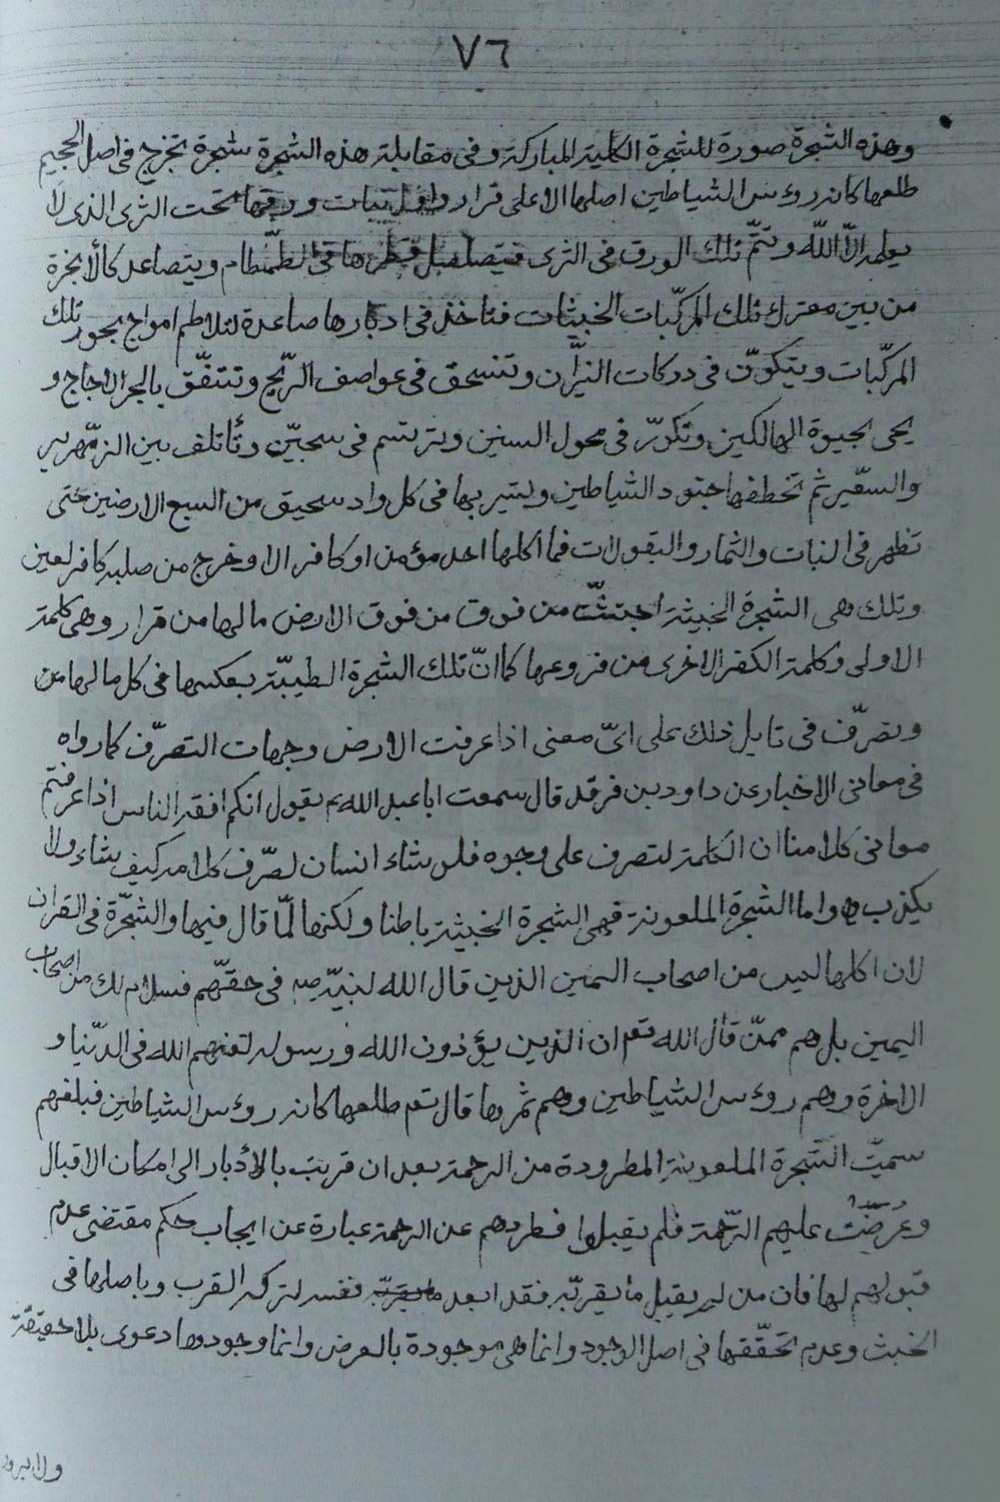 ٧٦
وهذه الشجرة صورة للشجرة الكلية المباركة وفى مقابلة هذه الشجرة شجرة تخرج فى اصل الجحيم
طلعها كانه رؤس الشياطين اصلها الاعلى قرار ورقها تحت الثرى الذى لا
يعلمه الّا اللّه وتتمّ تلك الورق فى الثرى الطمطام ويتصاعد كالأبخرة
من بين معترك تلك المركّبات الخبيثات فتاخذ فى ادبارها صاعدة لتلاطم امواج بحور تلك
المركّبات ويتكوّن فى دركات النيّرن وتنسحق فى عواصف الرّيح وتتنفّق بالبحر الاجاج و
يحى بحيوة الهالكين وتكوّر فى محول السنين وترتسم فى سجيّن وتأتلف بين الزمّهرير
والسعّير ثم تخطفها جنود الشياطين وتسير بها فى كل واد سحيق من السبع الارضين حتى
تظهر فى النبات والثمار والبقولات فما اكلها احد مؤمن او كافر الا وخرج من صلبه كافر لعين
وتلك هى الشجرة الخبيثة اجتثّت من فوق من فوق الارض ما لها من قرار وهى كلمة
الاولى وكلمة الكفر الاخرى من فروعها كما انّ تلك الشجرة الطيبّة بعكسها فى كل ما لها من
وتصرّف فى تاويل ذلك على اىّ معنى اذا عرفت الارض وجهات التصرّف كما رواه
فى معانى الاخبار عن داود بن فرقد قال سمعت ابا عبد الله ع يقول انكم افقه الناس اذا عرفتم
معانى كلامنا ان الكلمة لتصرف على وجوه فلو شاء انسان لصّرف كلامه كيف يشاء ولا
يكذب واما الشجرة الملعونة فهى الشجرة الخبيثة باطنا ولكنها لمّا قال فيها والشجّرة فى القران
لان اكلها ليس من اصحاب اليمين الذين قال الله لنبيّه ص فى حقهّم فسلام لك من اصحاب
اليمين بل هم ممنّ قال الله تع ان الذين يؤذون الله ورسوله لعنهم الله فى الدّنيا و
الاخرة وهم رؤس الشياطين وهم ثمرها قال تع طلعها كانه رؤس الشياطين فبلعنهم
سميّت الشّجرة الملعونة المطرودة من الرحمة بعد ان قربت بالأدبار الى امكان الاقبال
وعُرِضَتْ عليهم الرّحمة فلم يقبلوا فطردهم عن الرحمة عبارة عن ايجاب حكم مقتضى عدم
قبولهم لها فان من لم يقبل ما يقربّه فقد ابعد نفسه لتركه القرب وباصلها فى
الخبث وعدم تحقّقها فى اصل الوجود وانما هى موجودة بالعرض وانما وجودها دعوى بلا حقيقة